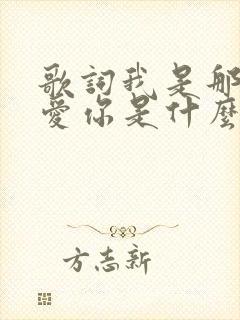 歌詞我是那
愛你是什麼
方志新